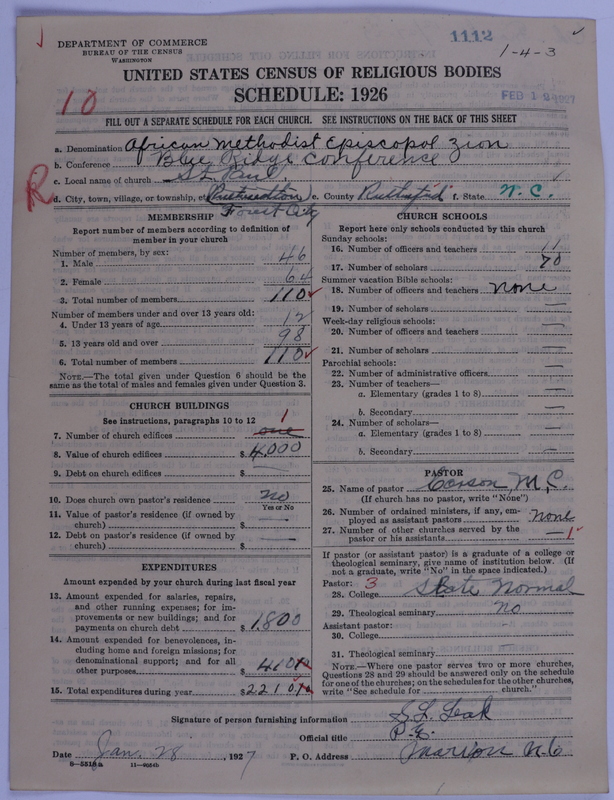 1112
1-4-3
DEPARTMENT OF COMMERCE
BUREAU OF THE CENSUS
WASHINGTON
UNITED STATES CENSUS OF RELIGIOUS BODIES
SCHEDULE: 1926
10
FEB 1 1927
FILL OUT A SEPARATE SCHEDULE FOR EACH CHURCH. SEE INSTRUCTIONS ON THE BACK OF THIS SHEET
a. Denomination African Methodist Episcopal Zion
b. Conference Blue Ridge Conference
c. Local name of church St. Paul,
R
d. City, town, village, or township, e. County Rutherford f. State N. C.
Forest City
MEMBERSHIP
Report number of members according to definition of
member in your church
Number of members, by sex:
1. Male 46
2. Female 64
3. Total number of members 110
Number of members under and over 13 years old:
4. Under 13 years of age 12
5. 13 years old and over 98
6. Total number of members 110
NOTE.—The total given under Question 6 should be
the same as the total of males and females given under Question 3.
CHURCH BUILDINGS
See instructions, paragraphs 10 to 12 1
7. Number of church edifices one
8. Value of church edifices $4000
9. Debt on church edifices $
10. Does church own pastor's residence no
Yes or No
11. Value of pastor's residence (if owned by
church) $ —
12. Debt on pastor's residence (if owned by
church) $ —
EXPENDITURES
Amount expended by your church during last fiscal year
13. Amount expended for salaries, repairs,
and other running expenses; for im-
provements or new buildings; and for
payments on church debt $1800
14. Amount expended for benevolences, in-
cluding home and foreign missions; for
denominational support; and for all
other purposes. $ 410
15. Total expenditures during year $2210
CHURCH SCHOOLS
Report here only schools conducted by this church
Sunday schools:
16. Number of officers and teachers 11
17. Number of scholars 70
Summer vacation Bible schools:
18. Number of officers and teachers none
19. Number of scholars —
Week-day religious schools:
20. Number of officers and teachers —
21. Number of scholars —
Parochial schools:
22. Number of administrative officers —
23. Number of teachers—
a. Elementary (grades 1 to 8) —
b. Secondary —
24. Number of scholars—
a. Elementary (grades 1 to 8) —
b. Secondary —
PASTOR
25. Name of pastor M, C.
(If church has no pastor, write "None")
26. Number of ordained ministers, if any, em-
ployed as assistant pastors none
27. Number of other churches served by the
pastor or his assistants — 1
If pastor (or assistant pastor) is a graduate of a college or
theological seminary, give name of institution below. (If
not a graduate, write "No" in the space indicated.)
Pastor: 3
28. College State Normal
29. Theological seminary no
Assistant pastor:
30. College
31. Theological seminary
NOTE.—Where one pastor serves two or more churches,
Questions 28 and 29 should be answered only on the schedule
for one of the churches; on the schedules for the other churches,
write "See schedule for church."
Signature of person furnishing information S. L. Leak
Official title P. E.
Date Jan. 28, 1927 P. O. Address Marion N. C
8-5518a 11-9664b